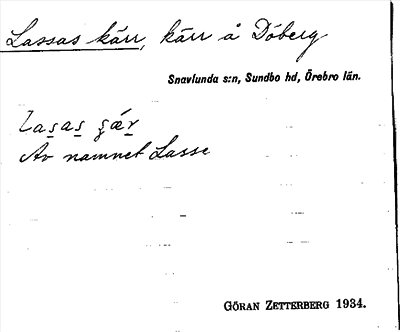 Lassas kärr, kärr å Dóberg
Snavlunda s:n, Sundbo hd, Örebro län.
Av namnet Lasse
GÖRAN ZETTERBERG 1934.